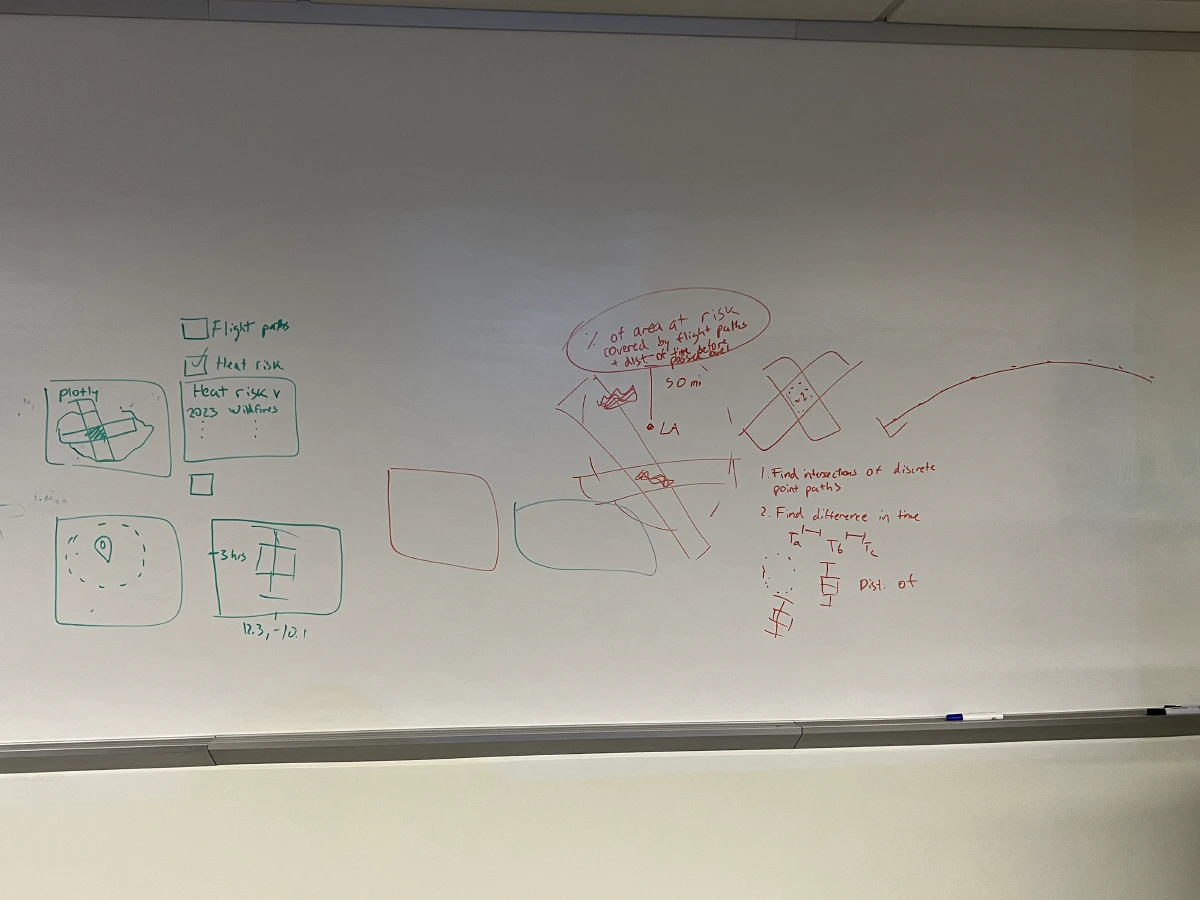 Flight paths
Heat risk
plotly
Heat risk v
2023 wildfires
3 hrs
12.3, -10.1
% of area at risk
covered by flight paths
+ dist. of time before
passed over
50 mi
LA
~2
1. Find intersections of discrete
point paths
2. Find difference in time
Ta Tb Tc
Dist. of